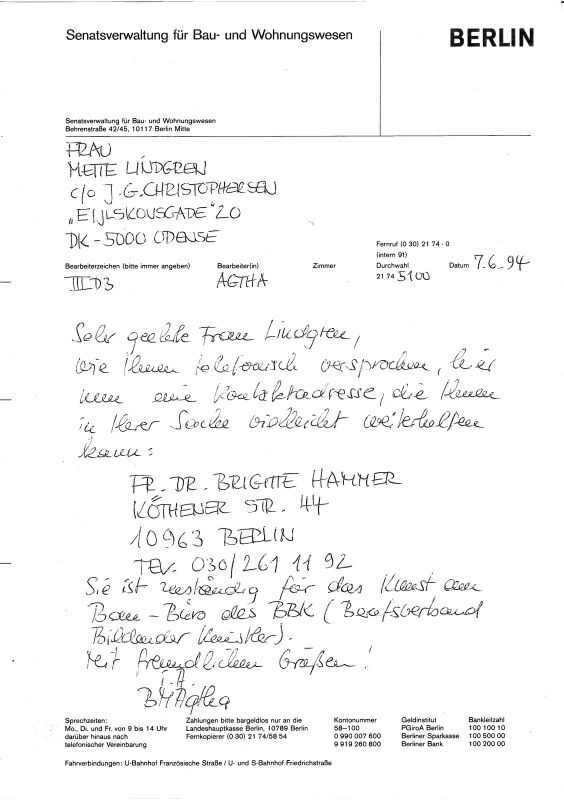 Senatsverwaltung für Bau- und Wohnungswesen
BERLIN
Senatsverwaltung für Bau- und Wohnungswesen
Behrenstraße 42/45, 10117 Berlin Mitte
FRAU
METTE LINDGREN
c/o J.G. CHRISTOPHERSEN
„EIJLSKOVSGADE" 20
DK - 5000 ODENSE
Fernruf (0 30) 21 74 - 0
(intern 91)
Bearbeiterzeichen (bitte immer angeben) Bearbeiter(in) Zimmer Durchwahl Datum 7.6.94
III D3 AGTHA 21 74 5100
Sehr geehrte Frau Lindgren,
wie Ihnen telefonisch versprochen, hier
nun eine Kontaktadresse, die Ihnen
in Ihrer Sache vielleicht weiterhelfen
kann:
FR. DR. BRIGITTE HAMMER
KÖTHENER STR. 44
10963 BERLIN
TEL. 030/261 11 92
Sie ist zuständig für das Kunst am
Bau-Büro des BBK (Berufsverband
Bildender Künstler).
Mit freundlichen Grüßen!
i.A.
Agtha
Sprechzeiten:
Mo., Di. und Fr. von 9 bis 14 Uhr
darüber hinaus nach
telefonischer Vereinbarung
Zahlungen bitte bargeldlos nur an die
Landeshauptkasse Berlin, 10789 Berlin
Fernkopierer (0 30) 21 74/58 54
Kontonummer Geldinstitut Bankleitzahl
58-100 PGiroA Berlin 100 100 10
0 990 007 600 Berliner Sparkasse 100 500 00
9 919 260 800 Berliner Bank 100 200 00
Fahrverbindungen: U-Bahnhof Französische Straße / U- und S-Bahnhof Friedrichstraße